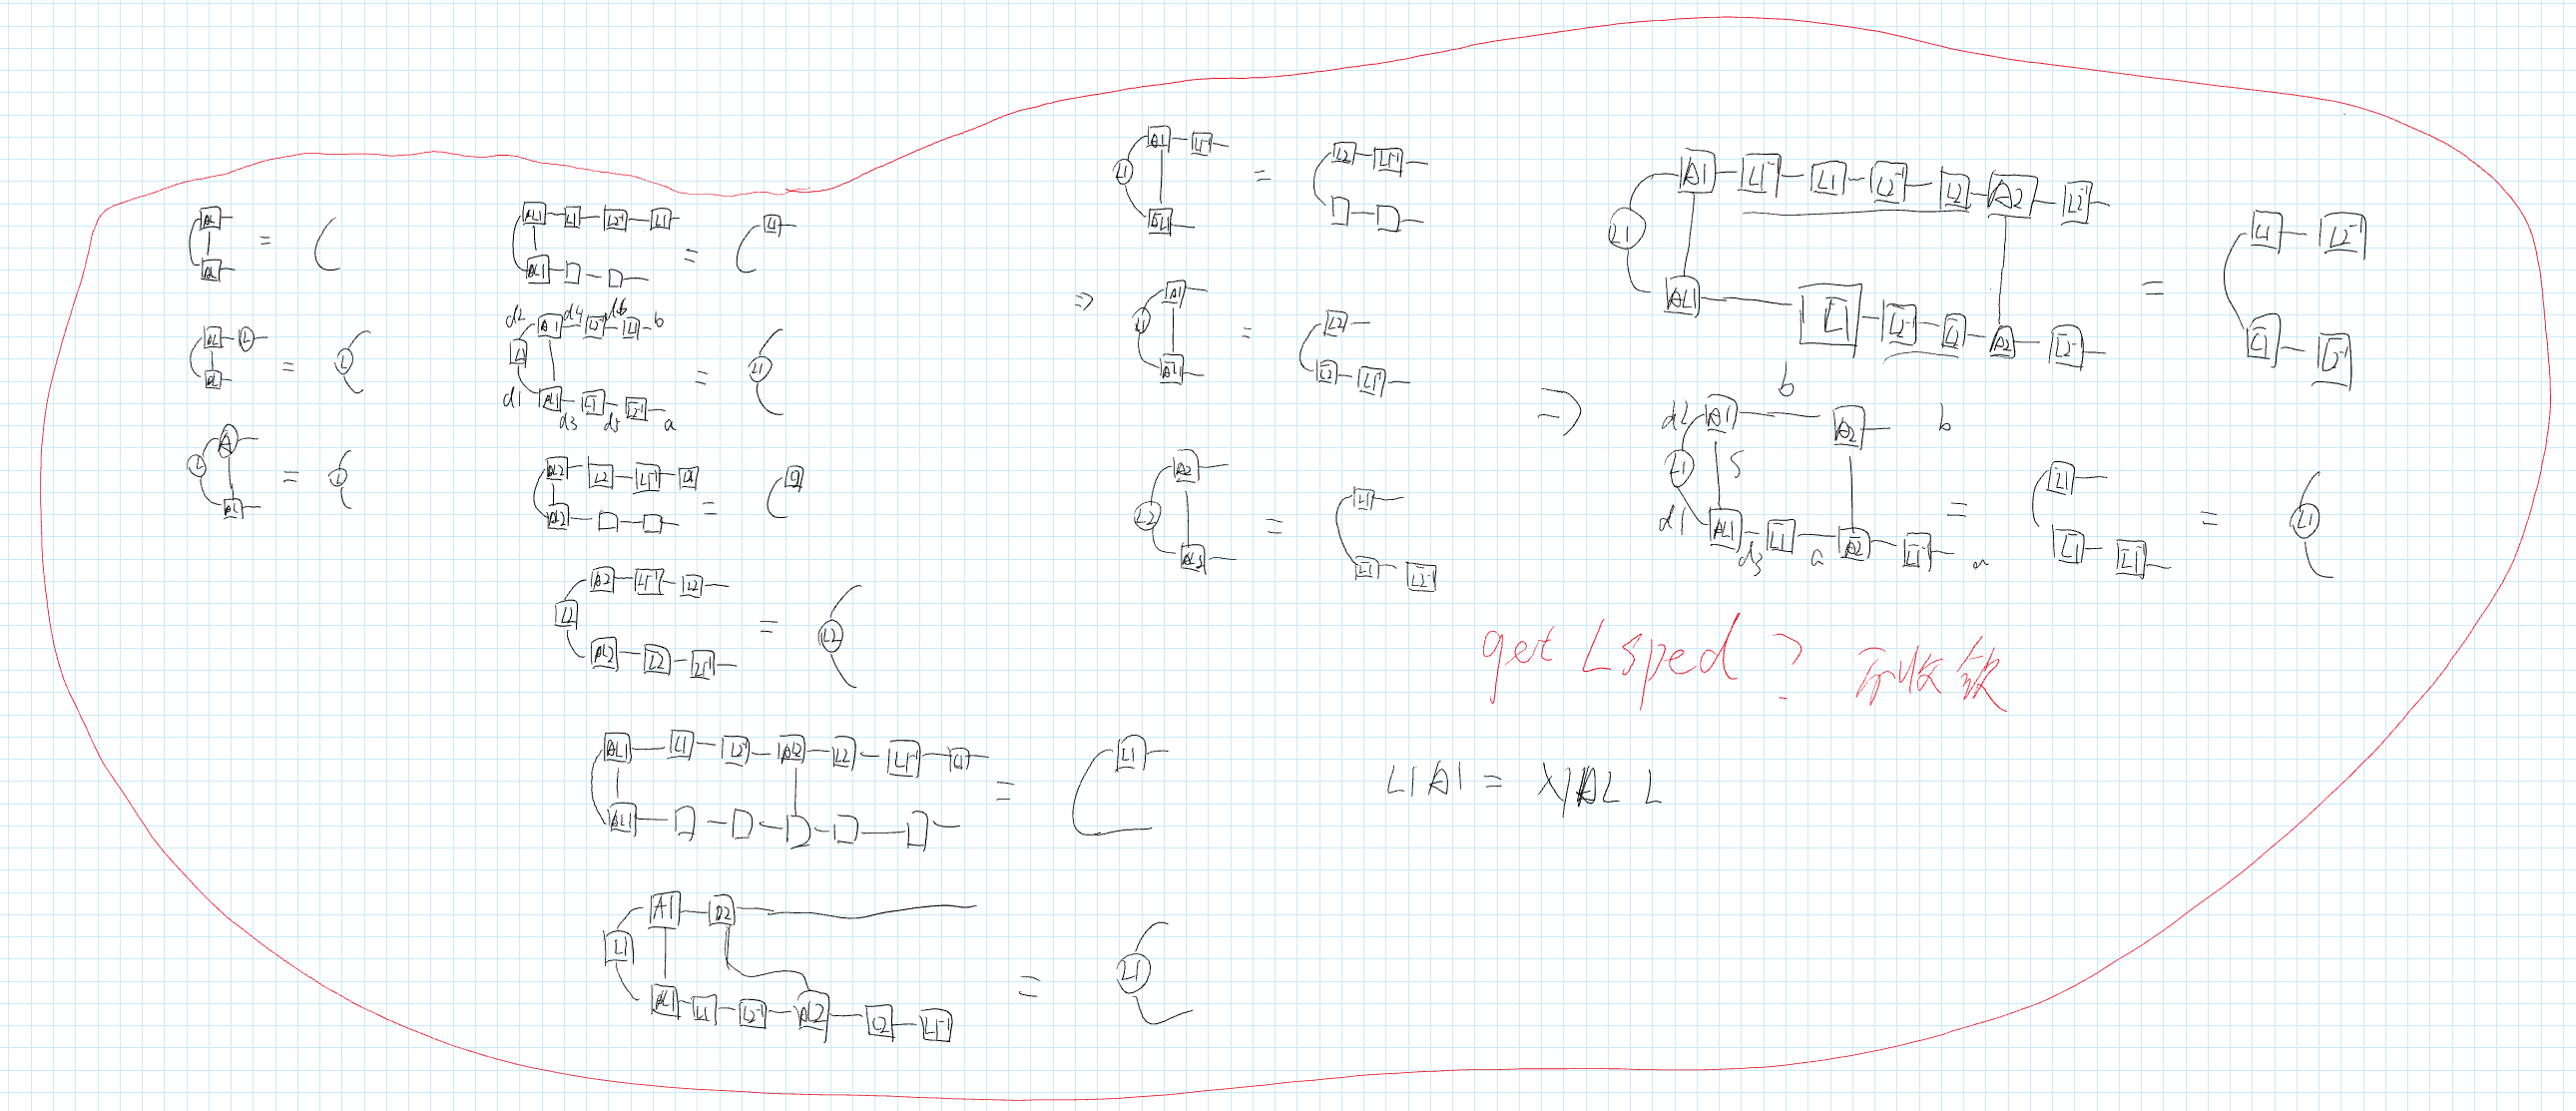 AL
AL
=
AL L
AL
= L
A
L
AL
= L
AL1 L1 L2⁻¹ L1
AL1
= L1
d2 A1 d4 L2⁻¹ d6 L1 b
L1
d1 AL1 d3 L1 d5 L2⁻¹ a
= L1
AL2 L2 L1⁻¹ L2
AL2
=
A2 L1⁻¹ L2
L2
AL2 L2 L1⁻¹
= L2
AL1 L1 L2⁻¹ AL2 L2 L1⁻¹ L1
AL1
= L1
A1 A2
L1
AL1 L1 L2⁻¹ AL2 L2 L1⁻¹
= L1
A1 L1⁻¹
L1
AL1
= L2 L1⁻¹
⇒
A1
L1
AL1
= L2
L2 L1⁻¹
A2
L2
AL2
= L1
L1 L2⁻¹
A1 L1⁻¹ L1 L2⁻¹ L2 A2 L2⁻¹
L1
AL1 L1 L2⁻¹ L2 A2 L2⁻¹
= L1 L2⁻¹
L1 L2⁻¹
⇒
d2 A1 b A2 b
L1 S
d1 AL1 d3 L1 a A2 L1⁻¹ a
= L1
L1 L1⁻¹
= L1
get Lsped ? 不收敛
L1A1 = λ AL L